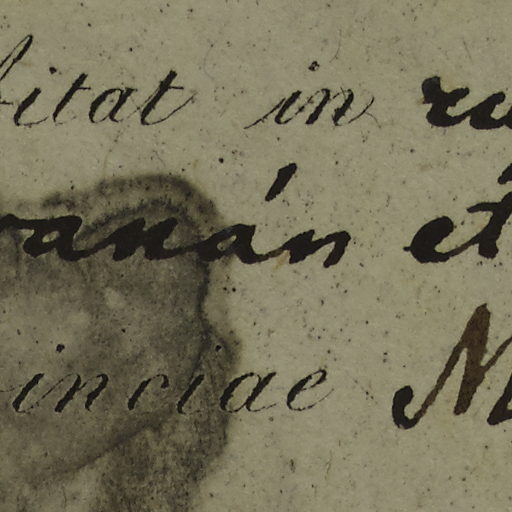 bitat in ru
ranán et
vinciae M